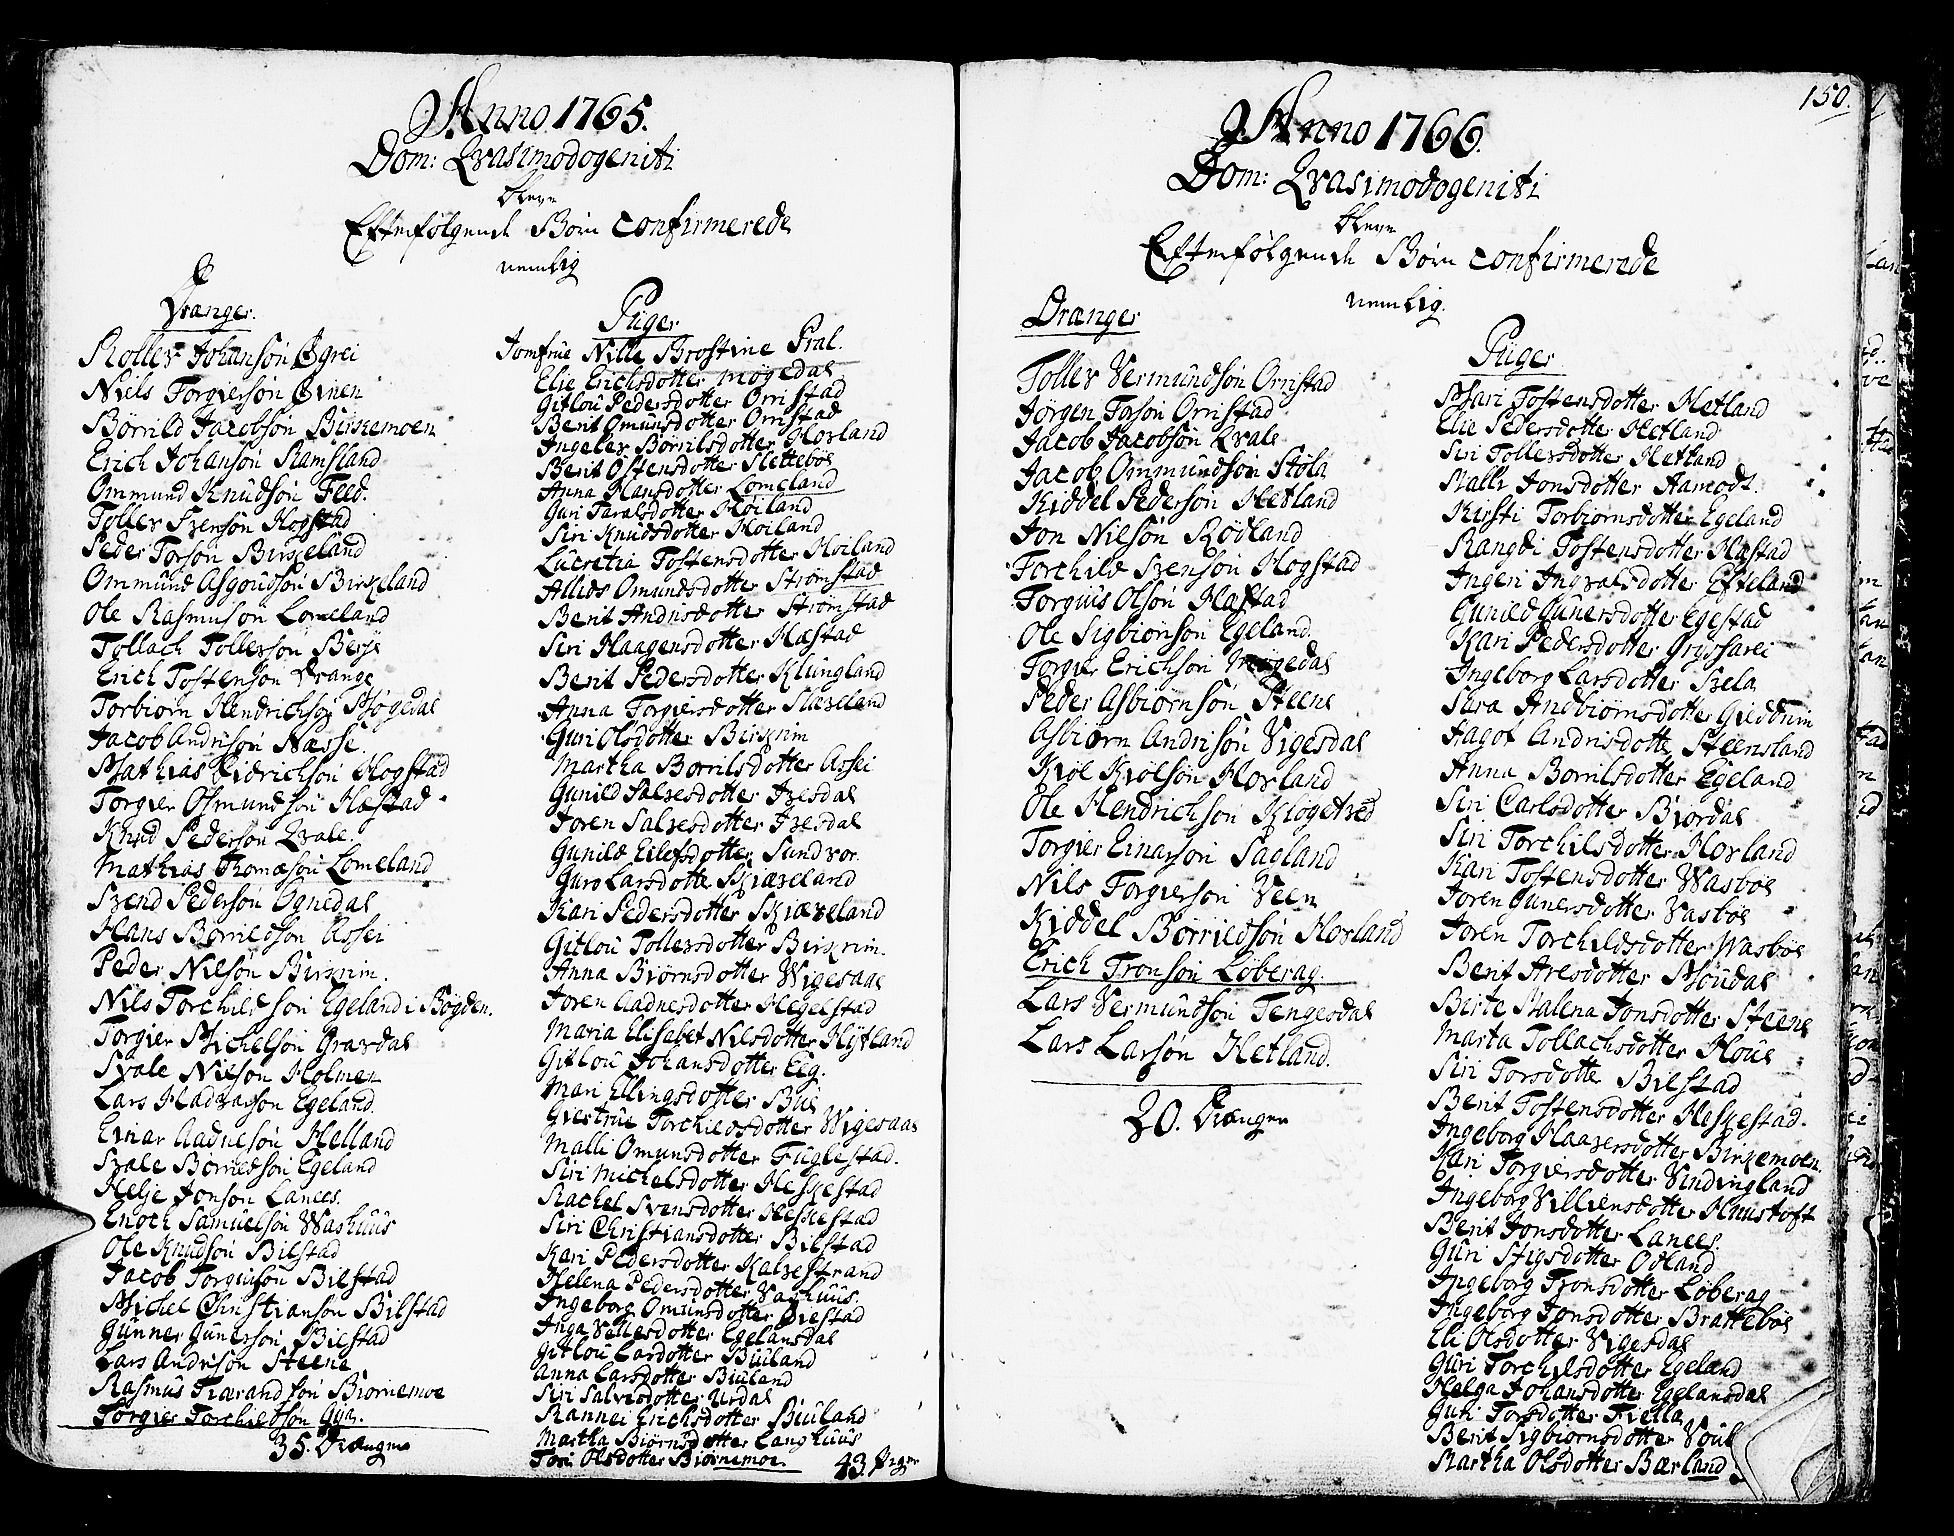 Anno 1765.
Dom: Qvasimodogeniti
bleve
Efterfølgende Børn confirmerede
nemlig
Drænger.
Rollev Johansøn Øgrei
Niels Torgiersøn Øinen
Børrild Jacobsøn Birkemoen
Erich Johansøn Ramsland
Ommund Knudsøn Feed.
Tollev Svensøn Hogstad
Peder Torsøn Birkeland
Ommund Asgoudsøn Birkeland
Ole Rasmusøn Lomeland
Tollach Tollevsøn Berge
Erich Tostensøn Drange
Torbiørn Hendrichsøn Møgedal
Jacob Andrisøn Næsse.
Mathias Didrichsøn Hogstad
Torgier Osmundsøn Hæstad
Knud Pedersøn Qvale.
Mathias Thomæsøn Lomeland
Svend Pedersøn Ognedal
Hans Børrildsøn Assei
Peder Nilsøn Birkrim.
Nils Torchildsøn Egeland i Bøgden.
Torgier Michelsøn Gravdal
Svale Nilsøn Holmen
Lars Hadvarsøn Egeland.
Einar Aadnesøn Helland
Svale Børrildsøn Egeland
Helje Jonsøn Lanees.
Enoch Samuelsøn Washuus
Ole Knudsøn Bilstad
Jacob Torgiusøn Bilstad
Michel Christiansøn Bilstad
Gunner Gunersøn Bilstad
Lars Andrisøn Steene
Rasmus Tiærandsøn Biørnemoe
Torgier Torchildsøn Gya.
35. Drænger
Piger
Jomfrue Nille Brostine Pral.
Elje Erichsdotter Møgedal
Gitlou Pedersdotter Orrestad
Berit Omunsdotter Orrestad
Ingelev Børrilsdotter Hovland
Berit Østensdotter Slettebøe
Anna Hansdotter Lomeland
Guri Taralsdotter Høiland
Siri Knudsdotter Høiland
Lucretia Tostensdotter Høiland
Allids Omundsdotter Strømstad
Berit Andrisdotter Strømstad
Siri Haagensdotter Hæstad
Berit Pedersdotter Klungland
Anna Torgiersdotter Skæveland
Guri Olsdotter Birkrim
Martha Børrilsdotter Assei
Gunild Salvesdotter Ivesdal
Joren Salvesdotter Ivesdal
Gunild Eilefsdotter Sundvor.
Guro Larsdotter Skiæveland
Kari Pedersdotter Skiæveland
Gitlou Tollevsdotter Birkrim.
Anna Biørnsdotter Wigesaae
Joren Aadnesdotter Hegelstad
Maria Elisabet Nilsdotter Hytland
Gitlou Johansdotter Eeg.
Mari Ellingsdotter Bue
Giertrue Torchildsdotter Wigesaae
Malli Omunsdotter Fuglestad.
Siri Michelsdotter Heskestad
Rachel Svensdotter Heskestad
Siri Christiansdotter Bilstad
Kari Pedersdotter Kalvestrand
Helena Pedersdotter Vashuus.
Ingeborg Omunsdotter Bilstad
Inga Vellesdotter Egelansdal
Gitlou Larsdotter Biuland
Anna Larsdotter Biuland
Siri Salvesdotter Urdal
Rannei Erichsdotter Biuland
Martha Biørnsdotter Langhuus
Tori Olsdotter Biørnemoe.
43. Piger
150.
Anno 1766.
Dom: Qvasimodogeniti
bleve
Efterfølgende Børn confirmerede
nemlig.
Drænger
Tollev Vermundsøn Orrestad
Jørgen Torsøn Orrestad
Jacob Jacobsøn Qvale
Jacob Ommundsøn Støla
Kiddel Pedersøn Hetland
Jon Nilsøn Rødland
Torchild Svensøn Hogstad
Torguis Olsøn Hæstad
Ole Sigbiørnsøn Egeland.
Torgier Erichsøn Møgedal
Peder Asbiørnsøn Steene
Asbiørn Andrisøn Vigesdal
Kiøl Kiølsøn Hovland
Ole Hendrichsøn Kløgetved
Torgier Einarsøn Sagland
Nils Torgiersøn Veen
Kiddel Børrildsøn Hovland
Erich Tronsøn Løberag.
Lars Vermundsøn Tengesdal
Lars Larsøn Hetland.
20. Drænger
Piger
Mari Tostensdotter Hetland
Elie Pedersdotter Hetland
Siri Tollevsdotter Hetland
Malli Jonsdotter Aamodt.
Kirsti Torbiørnsdotter Egeland
Rangdi Tostensdotter Hæstad
Ingeri Ingvalsdotter Efteland
Gunild Gunersdotter Egestad
Kari Pedersdotter Gryssarei
Ingeborg Larsdotter Svela
Sara Andbiørnsdotter Gieddrim
Aagot Andrisdotter Steensland
Anna Børrilsdotter Egeland
Siri Carlsdotter Biordal
Siri Torchilsdotter Hovland
Kari Tostensdotter Wasbøe
Joren Gunersdotter Vasbøe
Joren Torchildsdotter Wasbøe
Berit Avesdotter Moudal
Berte Malena Jonsdotter Steene
Marta Tollachsdotter Houe
Siri Torsdotter Bilstad
Berit Tostensdotter Heskestad.
Ingeborg Haaversdotter Birkemoen.
Kari Torgiersdotter Vindingland
Ingeborg Villiensdotter Hustoft
Berit Jonsdotter Lanees.
Guri Stigsdotter Odland
Ingeborg Tronsdotter Løberag
Ingeborg Jonsdotter Brattebøe
Eli Olsdotter Vigesdal
Guri Torchilsdotter Egeland
Helga Johansdotter Egelansdal
Guri Torsdotter Fiella
Berit Sigbiørnsdotter Voul
Martha Olsdotter Bærland